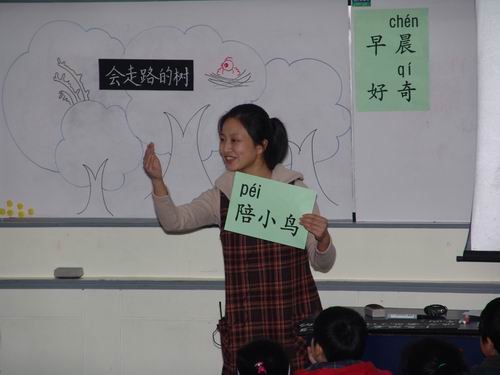 会走路的树
chén
早晨
qí
好奇
péi
陪小鸟